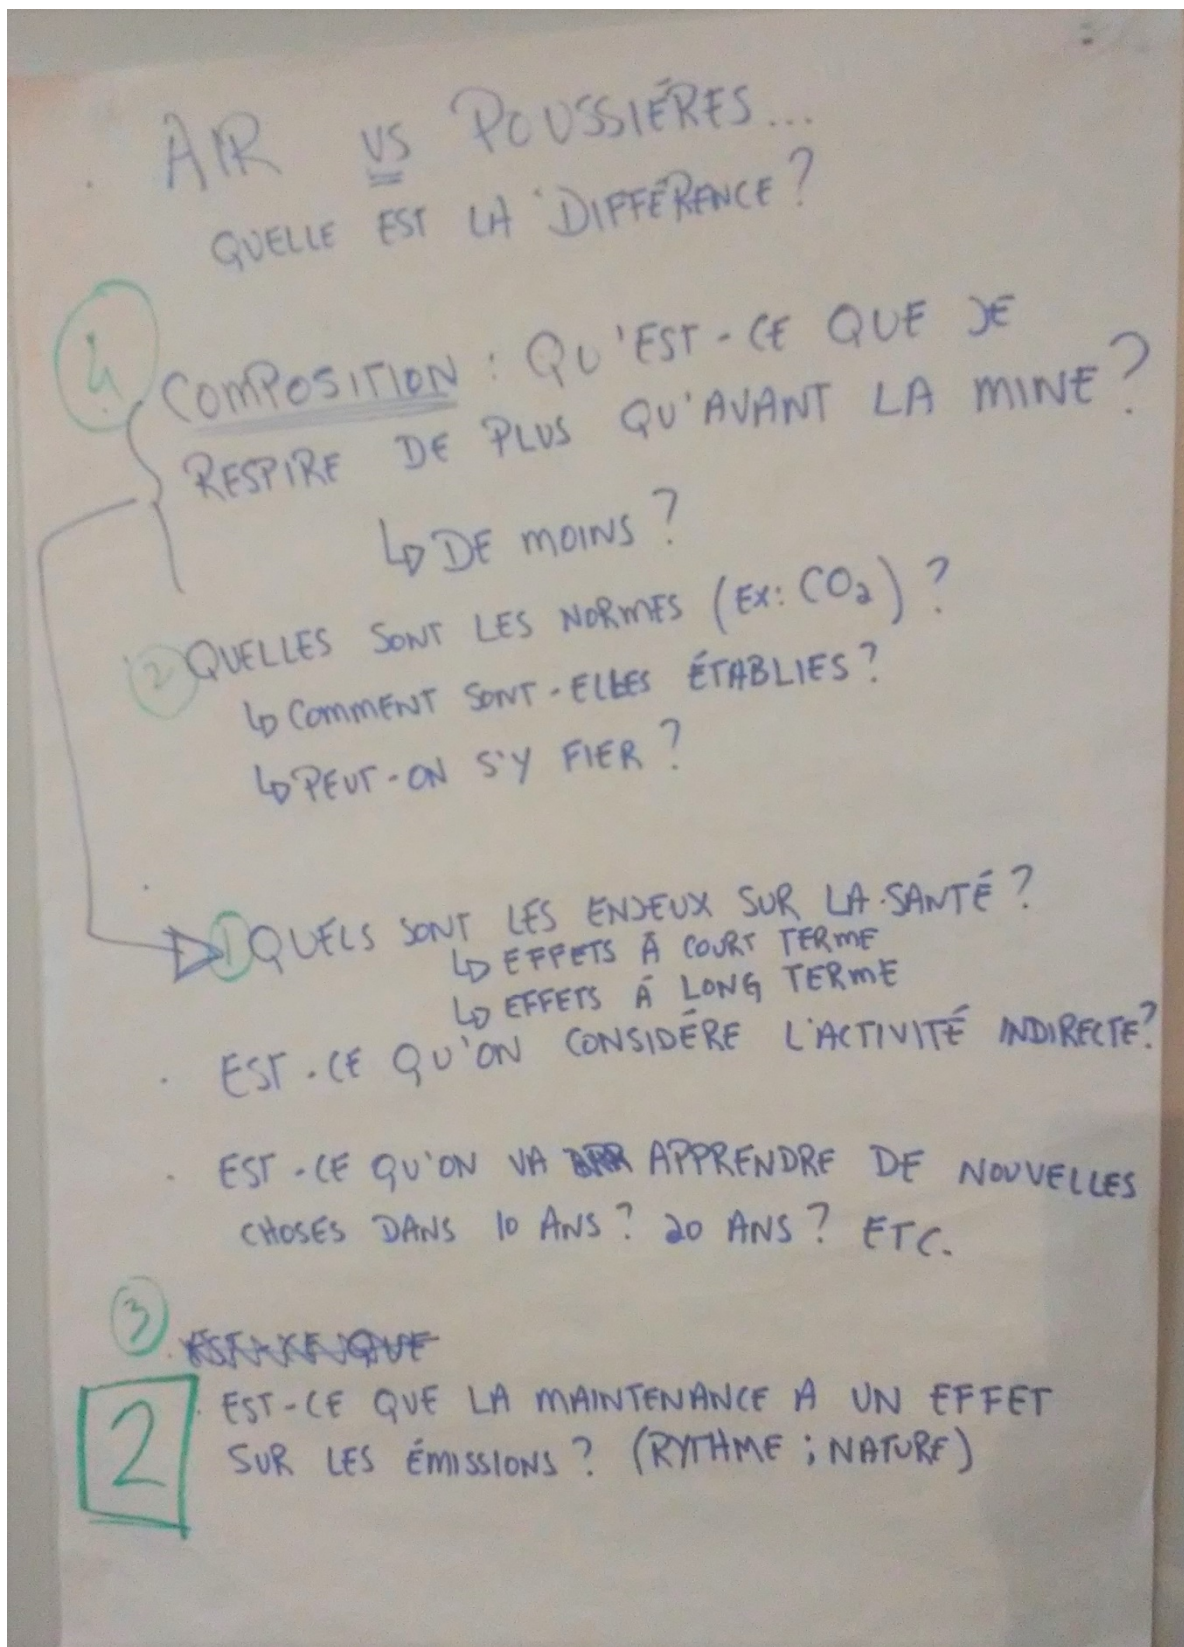 AIR VS POUSSIÉRES...
QUELLE EST LA DIFFÉRENCE?
4
COMPOSITION : QU'EST-CE QUE JE
RESPIRE DE PLUS QU'AVANT LA MINE?
↳ DE MOINS?
2 QUELLES SONT LES NORMES (EX: CO2)?
↳ COMMENT SONT-ELLES ÉTABLIES?
↳ PEUT-ON S'Y FIER?
1 QUELS SONT LES ENJEUX SUR LA SANTÉ?
↳ EFFETS À COURT TERME
↳ EFFETS À LONG TERME
· EST-CE QU'ON CONSIDÉRE L'ACTIVITÉ INDIRECTE?
· EST-CE QU'ON VA APPRENDRE DE NOUVELLES
CHOSES DANS 10 ANS? 20 ANS? ETC.
3
· EST-CE QUE
2 · EST-CE QUE LA MAINTENANCE A UN EFFET
SUR LES ÉMISSIONS? (RYTHME ; NATURE)